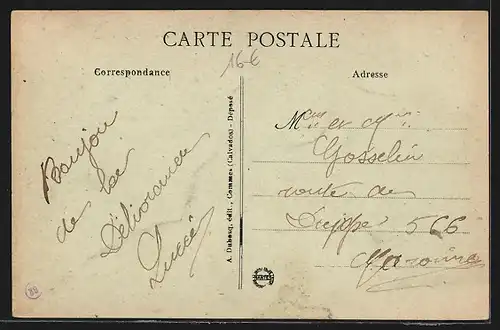 CARTE POSTALE
16€
Correspondance
Adresse
Bonjour
de la
Délivrande
Lucée
A. Dubosq, édit., Commes (Calvados) - Déposé
Mr et Me
Gosselin
route de
Dieppe 566
Maromme
80